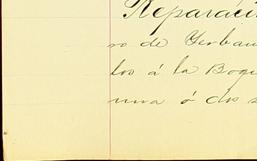 Reparaci
ro de Gerbau
los á la Boqu
una ó dos s